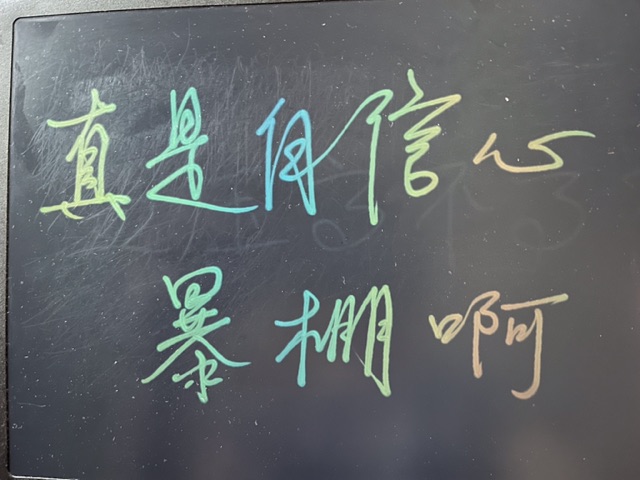 真是自信心
暴棚啊